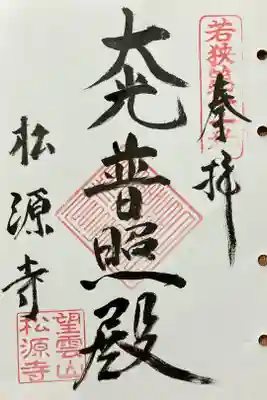 奉拝
大光普照殿
松源寺
望雲山
松源寺